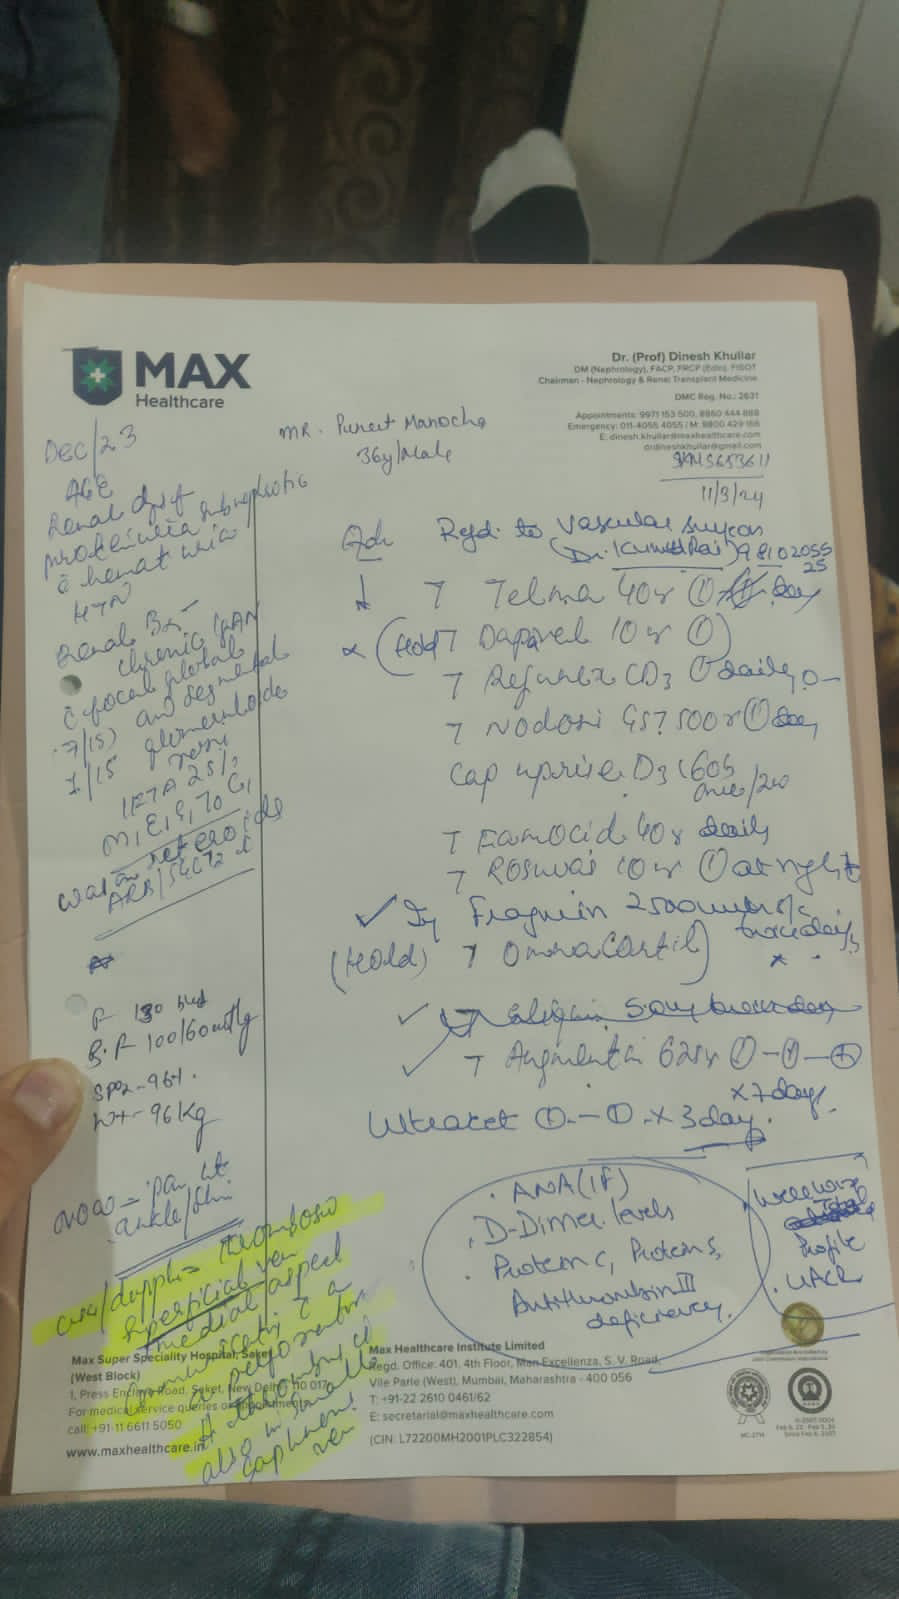 MAX
Healthcare
Dr. (Prof) Dinesh Khullar
DM (Nephrology), FACP, FRCP (Edin), FISOT
Chairman - Nephrology & Renal Transplant Medicine
DMC Reg. No.: 2631
Appointments: 9971 153 500, 8860 444 888
Emergency: 011-4055 4055 / M: 9800 429 168
E: dinesh.khullar@maxhealthcare.com
drdineshkhullar@gmail.com
11/3/24
Mr. Puneet Manocha
36y/Male
Dec/23
AGE
Renal
proteinuria subnephrotic
c̄ hematuria
HTN
Renal Bx -
chronic IgAN
c̄ focal global
7/15) and segmental
1/15
IFTA 25%
M1 E1 S1 T0 C1
was on steroids
ARB/SGLT2
P- 130
B.P 100/60 mmHg
SPO2 - 96%.
Wt - 96 Kg
Now = pain Lt
ankle/shin
thrombosis
superficial vein
medial aspect
communicating c̄ a
perforator
thrombosed
also in smaller
saphenous
vein
Adv Refd. to Vascular surgeon
(Dr. Kumud Rai) 98102055
25
T Telma 40 ① day
(Hold T 10 ①)
T CD3 ① daily
T Nodosis GST 500 ① day
Cap uprise D3 (60s
once/2
T Famocid 40 daily
T Rosuvas 10 ① at night
✓ Inj Fragmin 2500 units s/c
twice daily
(Hold) T Omnacortil)
✓ T 50mg twice a day
✓ T Augmentin 625 ①-①-①
x 7 days
Ultracet ① - ① x 3 day.
. ANA (IF)
. D-Dimer levels
. Protein C, Protein S,
Antithrombin III
deficiency.
Wellwise
Total
Profile
. UACR
Max Super Speciality Hospital, Saket
(West Block)
1, Press Enclave Road, Saket, New Delhi - 110 017
For medical service queries or appointments,
call: +91-11 6611 5050
www.maxhealthcare.in
Max Healthcare Institute Limited
Regd. Office: 401, 4th Floor, Man Excellenza, S. V. Road,
Vile Parle (West), Mumbai, Maharashtra - 400 056
T: +91-22 2610 0461/62
E: secretarial@maxhealthcare.com
(CIN: L72200MH2001PLC322854)